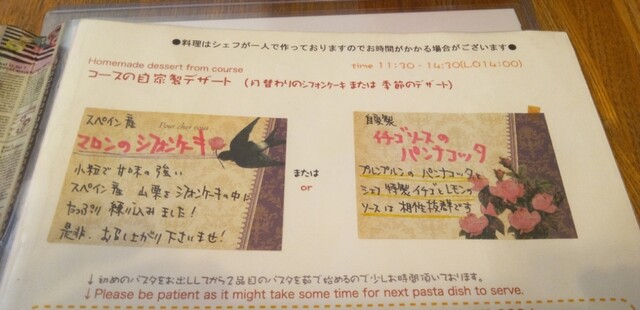 ●料理はシェフが一人で作っておりますのでお時間がかかる場合がございます●
Homemade dessert from course
time 11:30 - 14:30(L.O14:00)
コースの自家製デザート (月替わりのシフォンケーキ または 季節のデザート)
スペイン産
マロンの シフォンケーキ
小粒で 甘味の強い
スペイン産 山栗を シフォンケーキの中に
たっぷり 練り込みました!
是非、お召し上がり下さいませ!
または
or
自家製
イチゴソースの
パンナコッタ
プルンプルンの パンナコッタと
シェフ特製 イチゴとレモンの
ソースは 相性抜群です
↓初めのパスタをお出ししてから2品目のパスタを茹で始めるので少しお時間頂いております。
↓Please be patient as it might take some time for next pasta dish to serve.